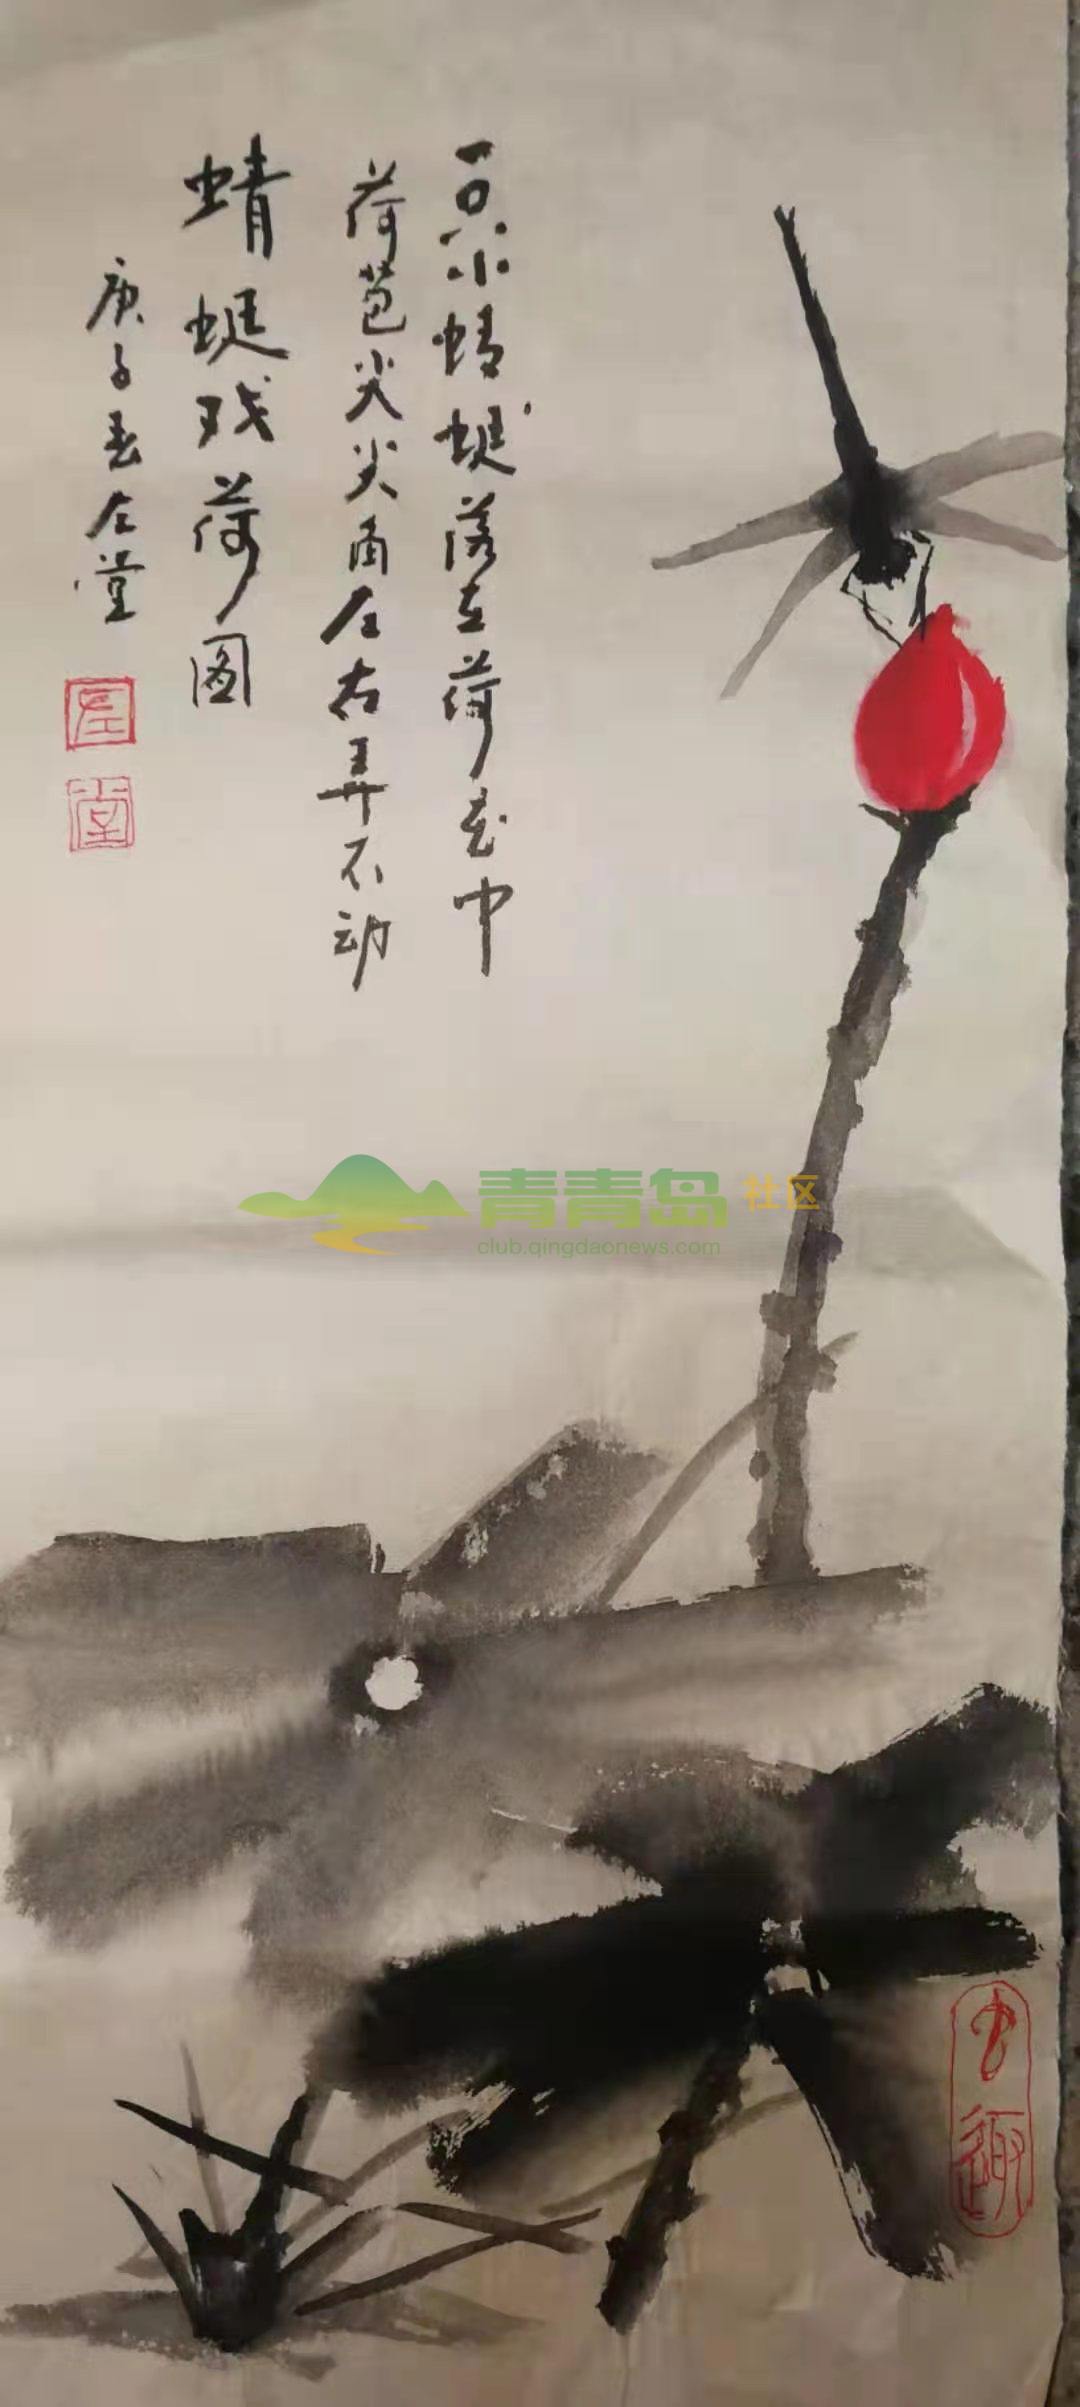 一只小蜻蜓落在荷花中
荷苞尖尖角左右弄不动
蜻蜓戏荷图
庚子春左堂
左
堂
青青岛社区
club.qingdaonews.com
趣